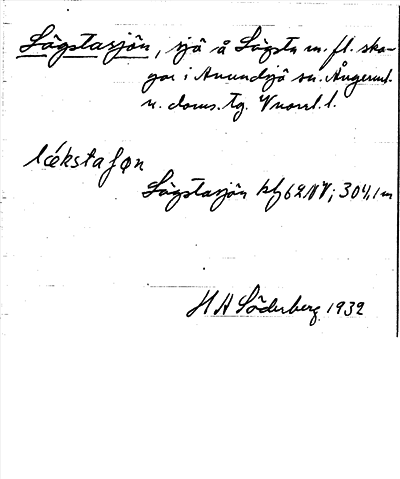 Lägstasjön, sjö å Lägsta m. fl. sko-
gar i Anundsjö sn. Ångerml.
n. doms. tg. Vnorrl. l.
lǽkstaʃøn
Lägstasjön kbl 62 NV; 304,1 m
H A Söderberg 1932